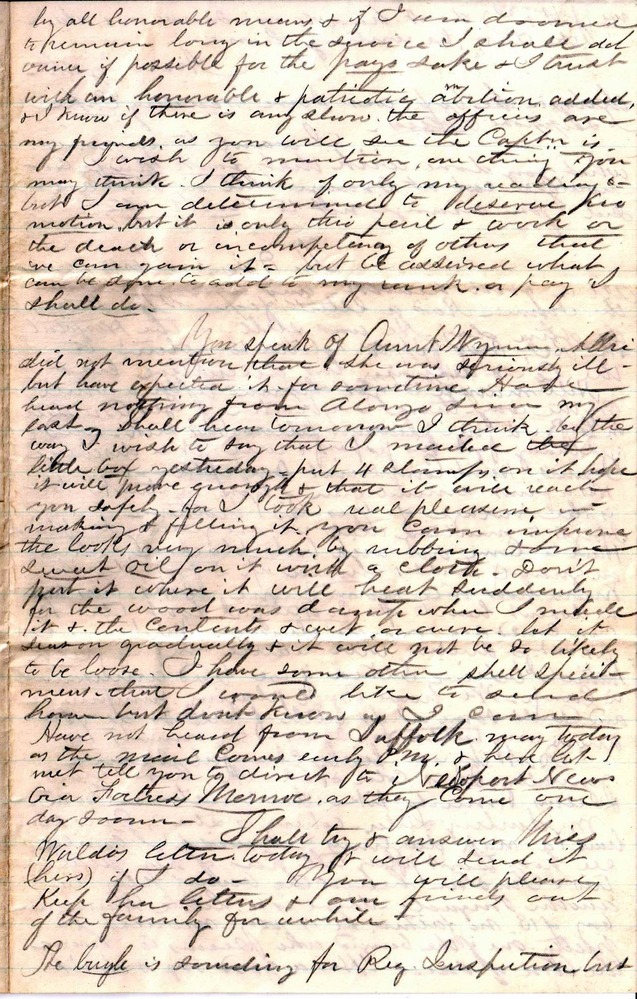 by all honorable means & if I am doomed
to remain long in the service I shall ad
vance if possible for the pays sake & I trust
with an honorable & patriotic ambition added,
& I know if there is any show the officers are
my friends, as you will see the Captn is.
I wish to mention, one thing you
may think. I think of only my
but I am determined to deserve pro
motion, but it is only thro peril & work or
the death or incompetency of others that
we can gain it - but be assured what
can be done to add to my rank or pay I
shall do.
You speak of Aunt Wyman. Allie
did not mention that she was seriously ill -
but have expected it for sometime. Have
heard nothing from Alonzo since my
last, shall hear tomorrow I think. by the
way I wish to say that I mailed the
little box yesterday - put 4 stamps on it hope
it will prove enough & that it will reach
you safely - for I took real pleasure in
making & filling it. You can improve
the looks very much by rubbing some
sweet oil on it with a cloth. Don't
put it where it will heat suddenly
for the wood was damp when I made
it & the contents & wet, or were. let it
season gradually & it will not be so likely
to be loose. I have some other shell speci-
mens that I would like to send
home but dont know as I can
Have not heard from Suffolk may today
as the mail comes early P.M. & here let
me tell you to direct to Newport News
via Fortress Monroe, as they come one
day sooner -
Shall try & answer Miss
Waldo's letter today & will send it
(hers) if I do - You will please
keep her letters & our friends out
of the family for awhile -
The bugle is sounding for Reg. Inspection but